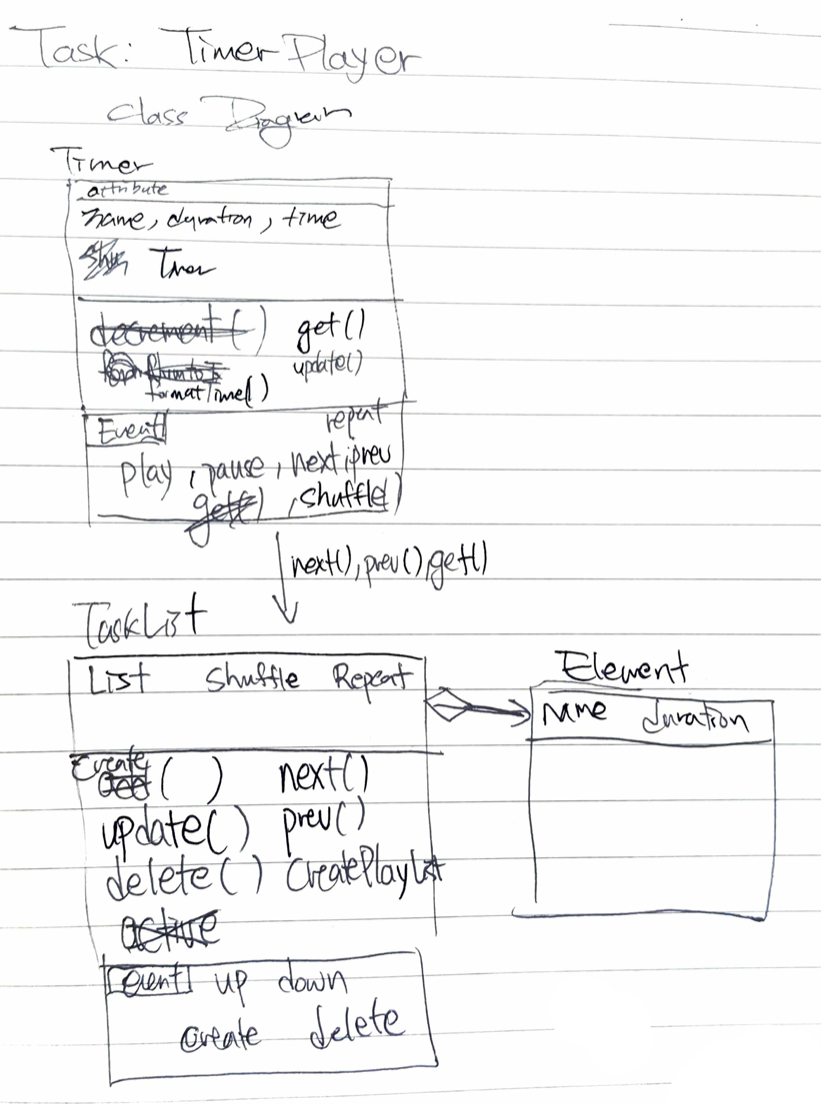 Task: Timer Player
Class Diagram
Timer
attribute
name, duration, time
Timer
decrement() get()
update()
formatTime()
Event repeat
play, pause, next, prev
get(), shuffle)
next(), prev(), get()
TaskList
List Shuffle Repeat
Element
name duration
Create() next()
update() prev()
delete() CreatePlayList
active
event up down
create delete